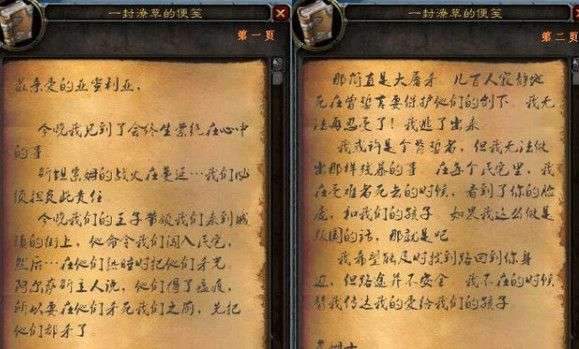 一封潦草的便笺
第一页
最亲爱的亚蜜莉亚，
今晚我见到了会终生萦绕在心中
的事
斯坦索姆的战火在蔓延…我们必
须担负此责任
今晚我们的王子带领我们来到城
镇的街上，他命令我们闯入民宅，
然后…在他们熟睡时把他们杀光
阿尔萨斯主人说，他们得了瘟疫，
所以要在他们杀死我们之前，先把
他们都杀了
一封潦草的便笺
第二页
那简直是大屠杀 几百人寂静地
死在曾誓言要保护他们的剑下 我无
法再忍受了！我逃了出来
我或许是个背誓者，但我无法做
出那样残暴的事 在每个民宅里，我
在受难者死去的时候，看到了你的脸
庞，和我们的孩子 如果我这么做是
叛国的话，那就是吧
我希望能及时找到路回到你身
边，但路途并不安全 我不在的时候
替我传达我的爱给我们的孩子